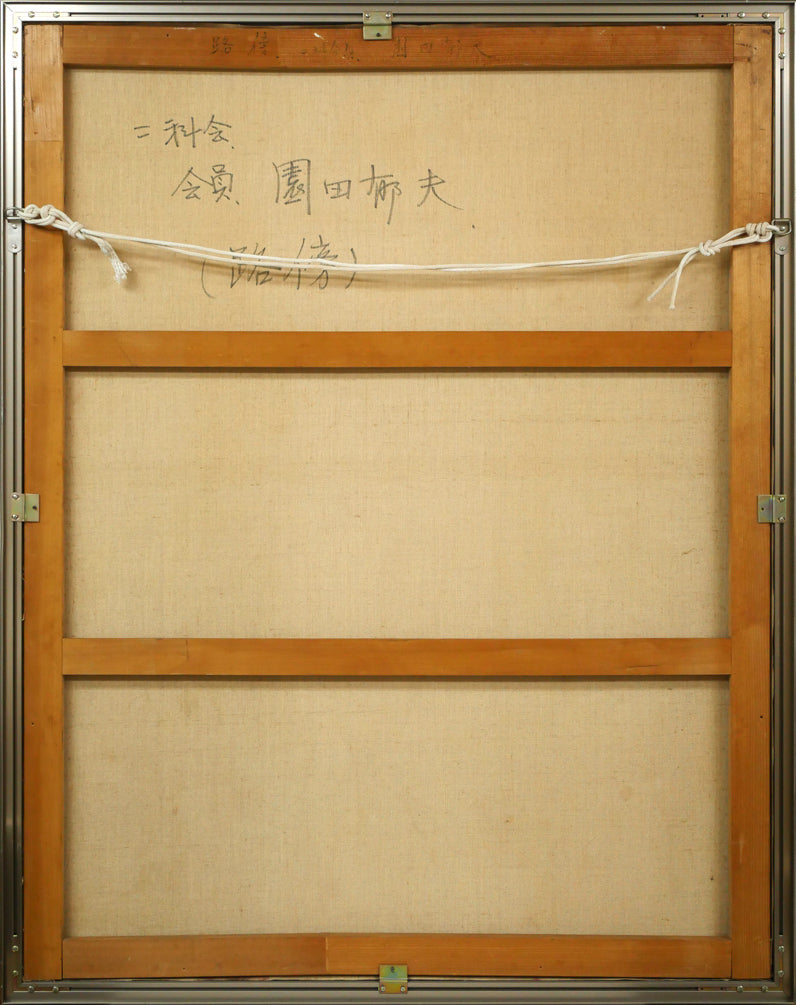 路 傍 園田郁夫
二科会
会員 園田郁夫
(路傍)